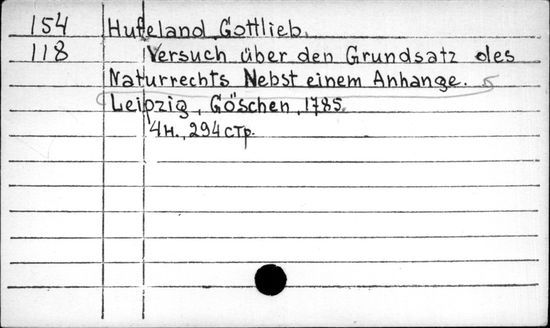 154 Hufeland Gottlieb.
118 Versuch über den Grundsatz des
Naturrechts Nebst einem Anhange.
Leipzig, Göschen, 1785.
4н., 294 стр.